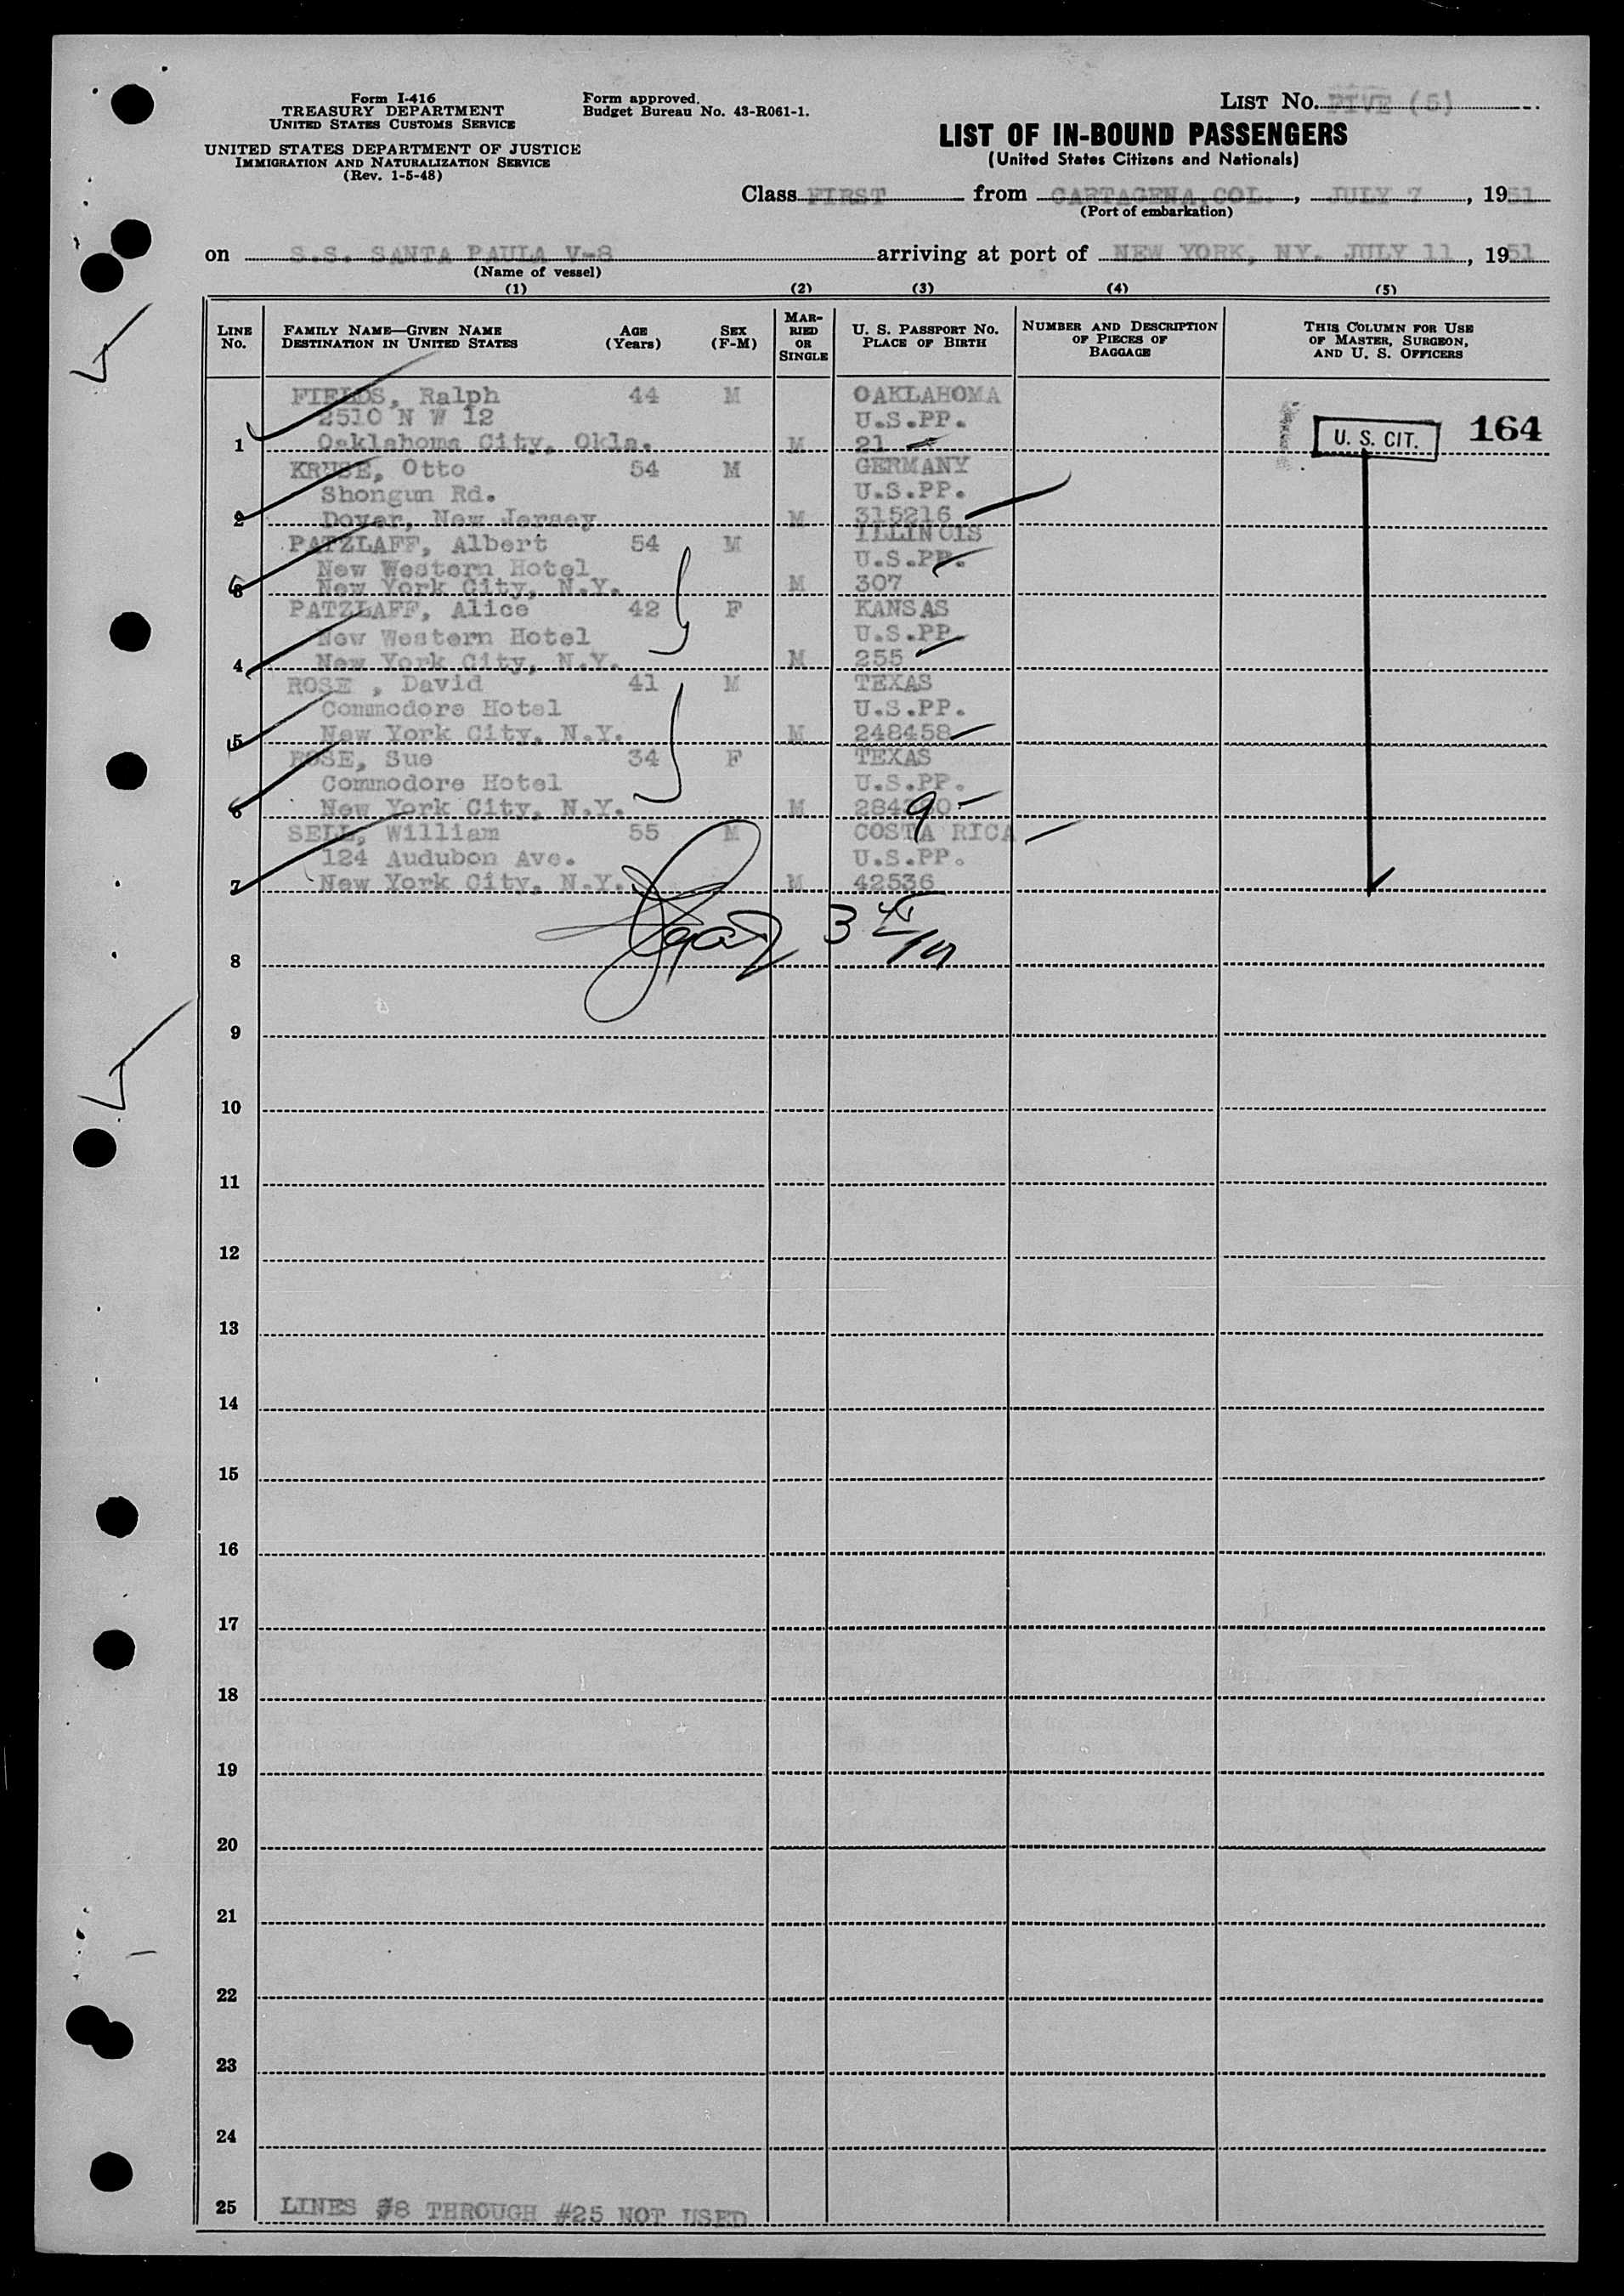 Form I-416
TREASURY DEPARTMENT
UNITED STATES CUSTOMS SERVICE
UNITED STATES DEPARTMENT OF JUSTICE
IMMIGRATION AND NATURALIZATION SERVICE
(Rev. 1-5-48)
Form approved.
Budget Bureau No. 43-R061-1.
LIST NO. FIVE (5)
LIST OF IN-BOUND PASSENGERS
(United States Citizens and Nationals)
Class FIRST from CARTAGENA, COL., JULY 7, 1951
(Port of embarkation)
on S.S. SANTA PAULA V-8 arriving at port of NEW YORK, NY. JULY 11, 1951
(Name of vessel)
(1) (2) (3) (4) (5)
LINE NO.
FAMILY NAME—GIVEN NAME
DESTINATION IN UNITED STATES
AGE (Years)
SEX (F-M)
MARRIED OR SINGLE
U. S. PASSPORT NO.
PLACE OF BIRTH
NUMBER AND DESCRIPTION OF PIECES OF BAGGAGE
THIS COLUMN FOR USE OF MASTER, SURGEON, AND U. S. OFFICERS
FIELDS, Ralph 44 M OAKLAHOMA
2510 N W 12 U.S.PP.
1 Oaklahoma City, Okla. M 21 U. S. CIT. 164
KRUSE, Otto 54 M GERMANY
Shongum Rd. U.S.PP.
2 Dover, New Jersey M 315216
PATZLAFF, Albert 54 M ILLINOIS
New Western Hotel U.S.PP.
3 New York City, N.Y. M 307
PATZLAFF, Alice 42 F KANSAS
New Western Hotel U.S.PP.
4 New York City, N.Y. M 255
ROSE , David 41 M TEXAS
Commodore Hotel U.S.PP.
5 New York City, N.Y. M 248458
ROSE, Sue 34 F TEXAS
Commodore Hotel U.S.PP.
6 New York City, N.Y. M 9
SELL, William 55 M COSTA RICA
124 Audubon Ave. U.S.PP.
7 New York City, N.Y. M 42536
8
9
10
11
12
13
14
15
16
17
18
19
20
21
22
23
24
25 LINES #8 THROUGH #25 NOT USED